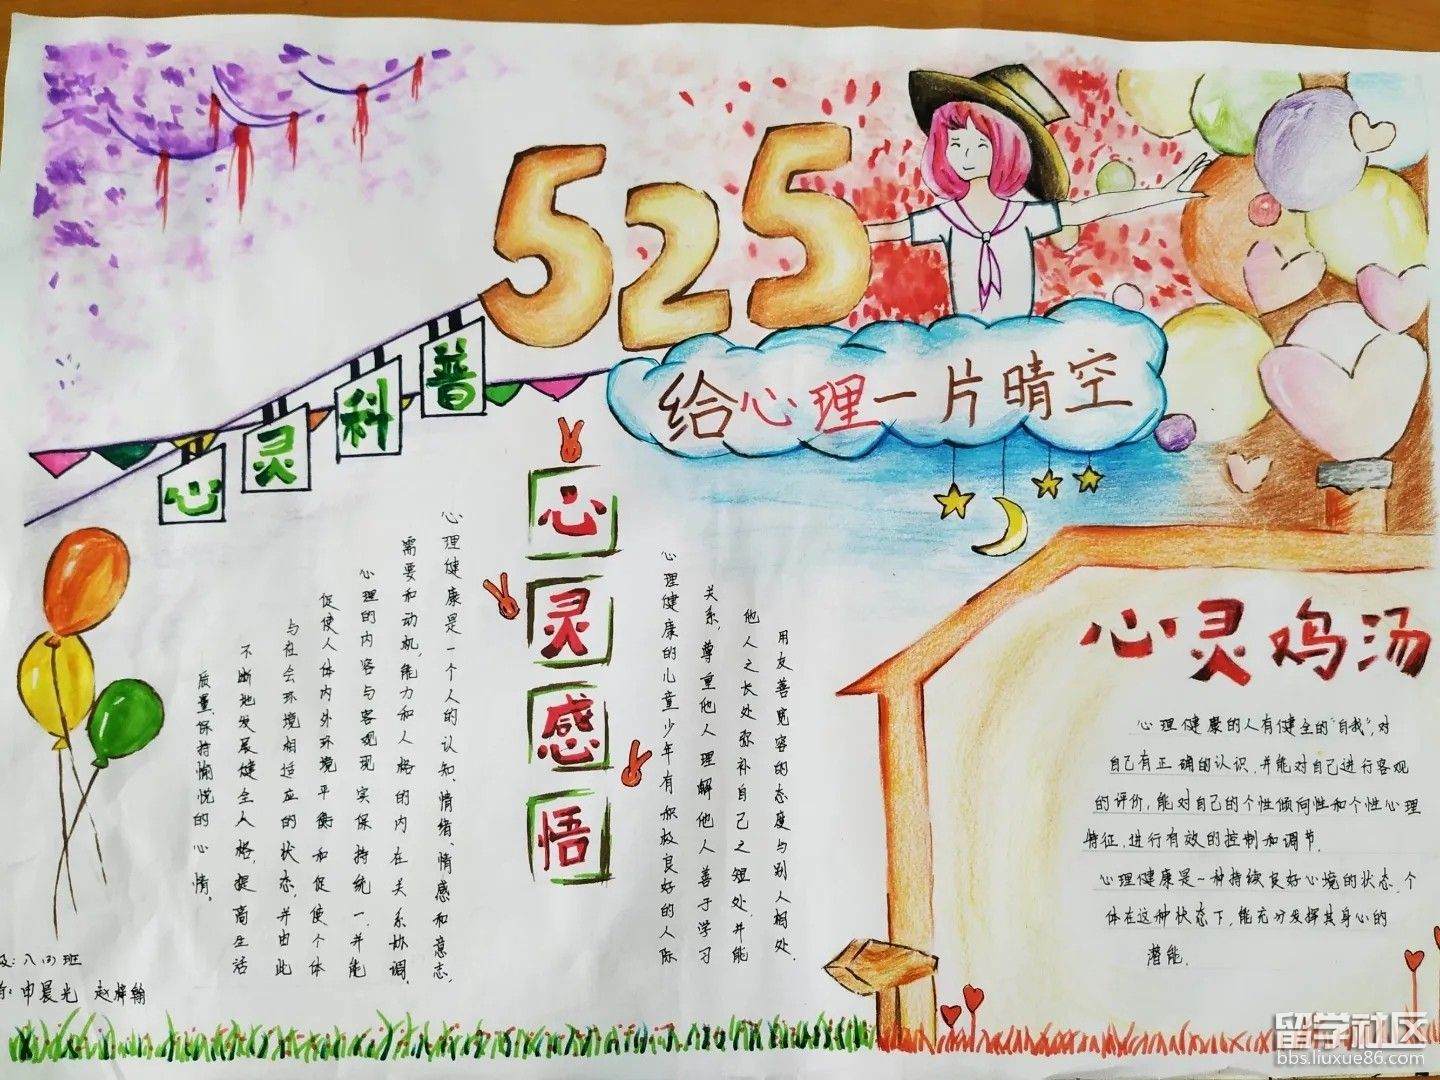 525
给心理一片晴空
心灵科普
心理健康是一个人的认知、情绪、情感和意志,
需要和动机,能力和人格的内在关系协调,
心理的内容与客观现实保持统一,并能
促使人体内外环境平衡和促使个体
与社会环境相适应的状态,并由此
不断地发展健全人格,提高生活
质量,保持愉悦的心情。
心灵感悟
心理健康的儿童少年有积极良好的人际
关系,尊重他人理解他人善于学习
他人之长处弥补自己之短处,并能
用友善宽容的态度与别人相处.
心灵鸡汤
心理健康的人有健全的"自我",对
自己有正确的认识,并能对自己进行客观
的评价,能对自己的个性倾向性和个性心理
特征,进行有效的控制和调节.
心理健康是一种持续良好心境的状态,个
体在这种状态下,能充分发挥其身心的
潜能.
级:八(3)班
申晨光 赵梓翰
留学社区
bbs.liuxue86.com